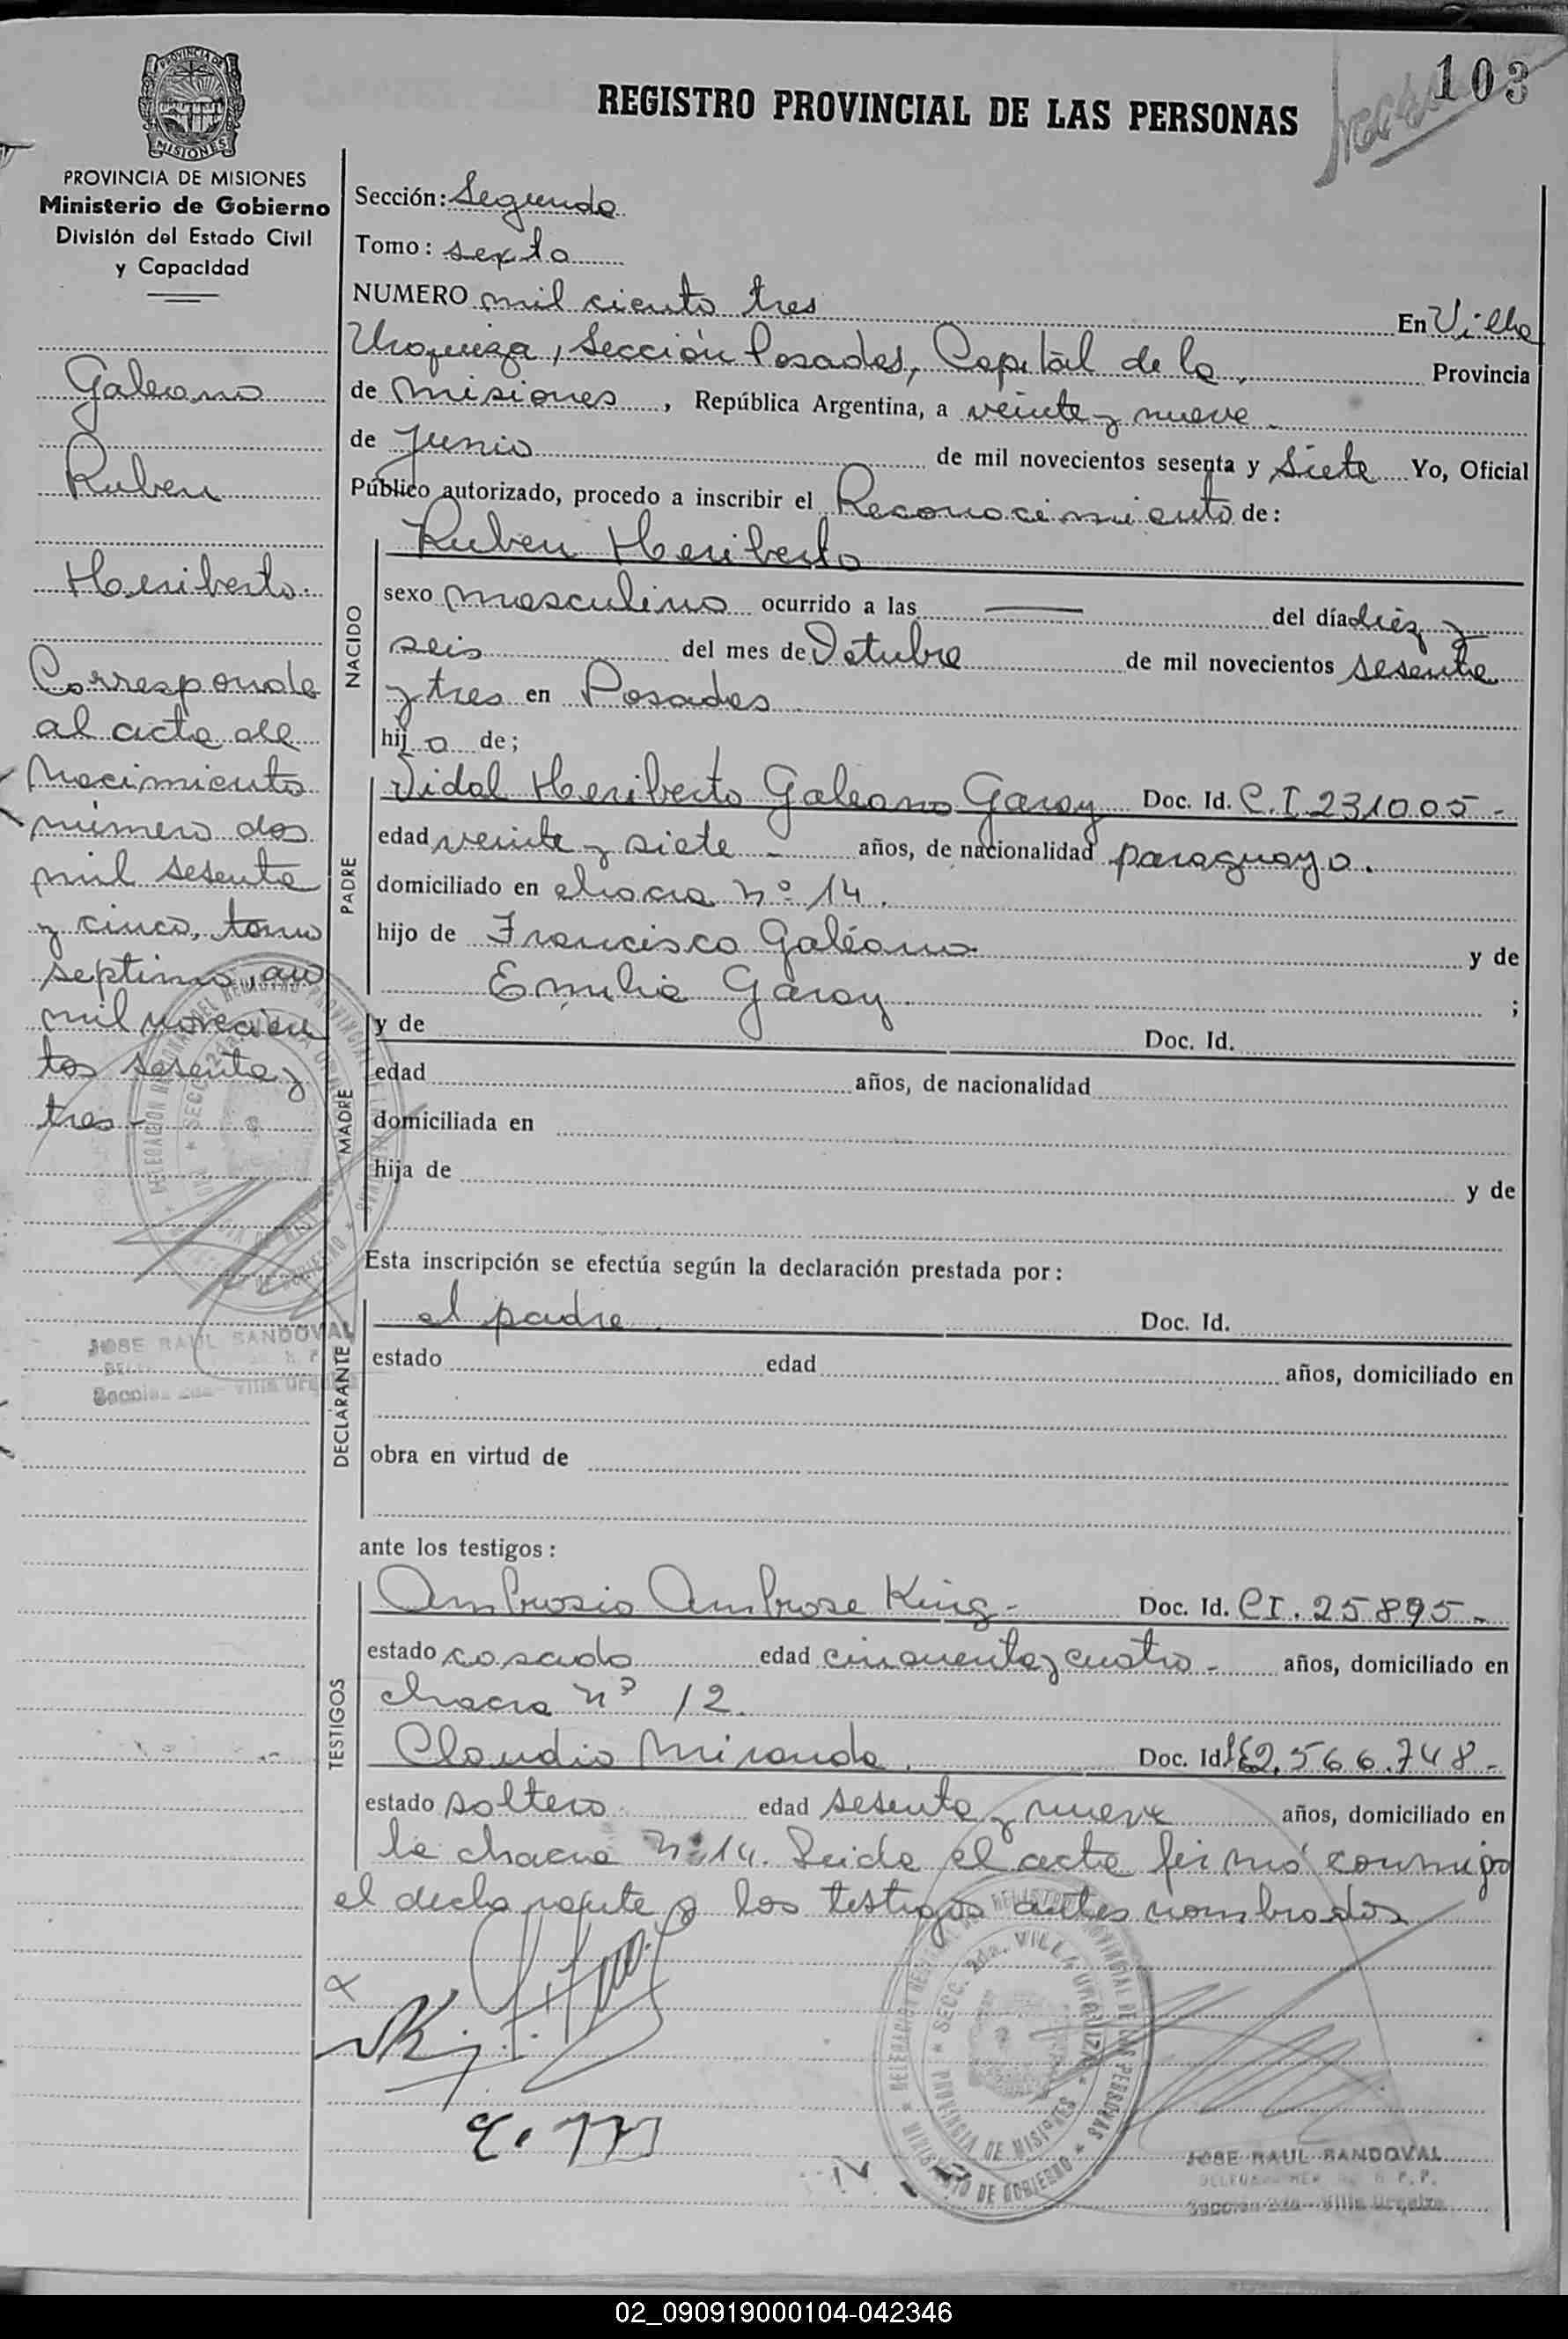 103
REGISTRO PROVINCIAL DE LAS PERSONAS
PROVINCIA DE
MISIONES
PROVINCIA DE MISIONES
Ministerio de Gobierno
División del Estado Civil
y Capacidad
Galeano
Ruben
Heriberto.
Corresponde
al acta de
Nacimiento
número dos
mil sesenta
y cinco, tomo
septimo, año
mil novecien
tos sesenta y
tres -
JOSE RAUL SANDOVAL
Sección 2da - Villa Urquiza
Sección: Segunda
Tomo: sexto
NUMERO mil ciento tres En Villa
Urquiza, Sección Posadas, Capital de la, Provincia
de Misiones, República Argentina, a veinte y nueve
de Junio de mil novecientos sesenta y siete Yo, Oficial
Público autorizado, procedo a inscribir el Reconocimiento de:
NACIDO
Ruben Heriberto
sexo masculino ocurrido a las — del día diez y
seis del mes de Octubre de mil novecientos sesenta
y tres en Posadas
hijo de;
PADRE
Vidal Heriberto Galeano Garay Doc. Id. C.I. 231005-
edad veinte y siete - años, de nacionalidad paraguaya.
domiciliado en chacra nº 14.
hijo de Francisco Galeano y de
Emilia Garay ;
MADRE
y de Doc. Id.
edad años, de nacionalidad
domiciliada en
hija de y de
Esta inscripción se efectúa según la declaración prestada por:
DECLARANTE
el padre. Doc. Id.
estado edad años, domiciliado en
obra en virtud de
ante los testigos:
TESTIGOS
Ambrosio Ambrose King- Doc. Id. CI. 25895-
estado casado edad cincuenta y cuatro - años, domiciliado en
chacra nº 12.
Claudio Miranda. Doc. Id. 2.566.748-
estado soltero edad sesenta y nueve años, domiciliado en
la chacra nº 14. Leida el acta firmó conmigo
el declarante y los testigos antes nombrados
DELEGACION REGISTRO PROVINCIAL DE LAS PERSONAS
MINISTERIO DE GOBIERNO
SECC. 2da. VILLA URQUIZA
PROVINCIA DE MISIONES
JOSE RAUL SANDOVAL
Sección 2da - Villa Urquiza
02_090919000104-042346